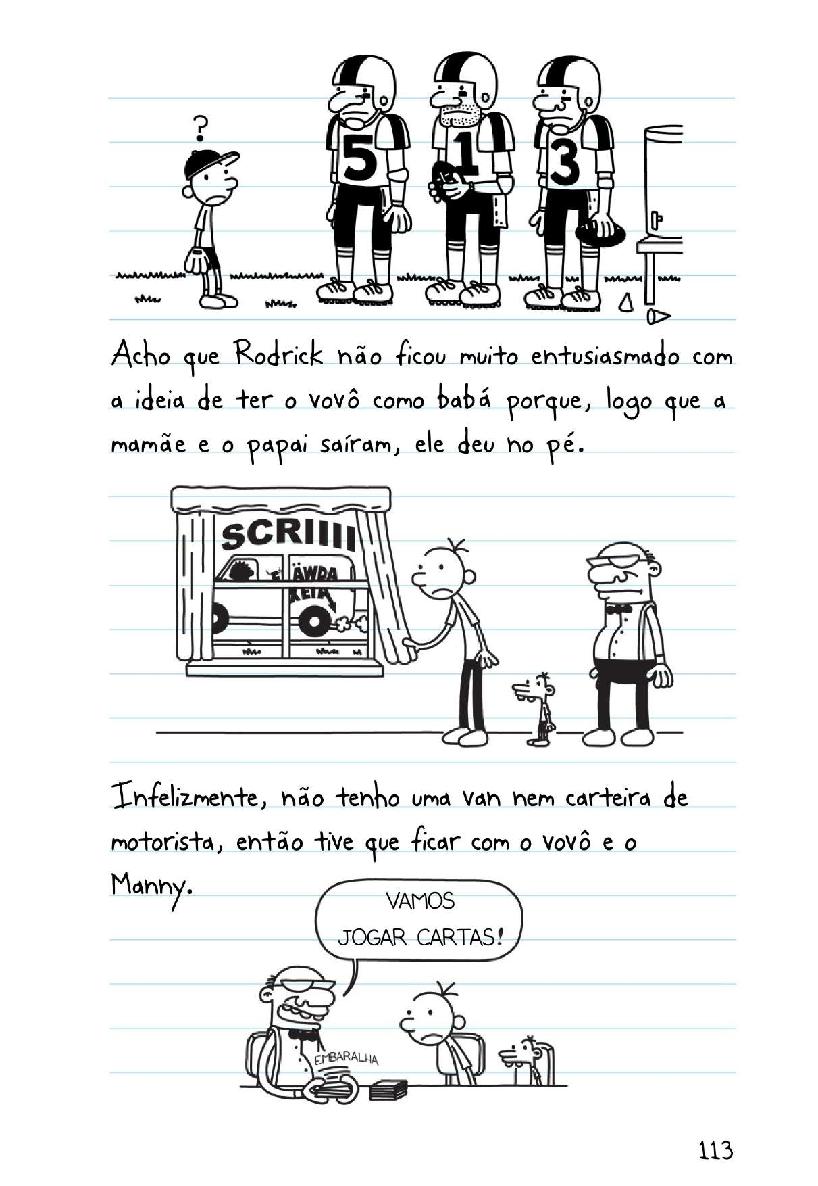 ?
5 1 3
Acho que Rodrick não ficou muito entusiasmado com
a ideia de ter o vovô como babá porque, logo que a
mamãe e o papai saíram, ele deu no pé.
SCRIIII
ÄWDA
Infelizmente, não tenho uma van nem carteira de
motorista, então tive que ficar com o vovô e o
Manny.
VAMOS
JOGAR CARTAS!
EMBARALHA
113